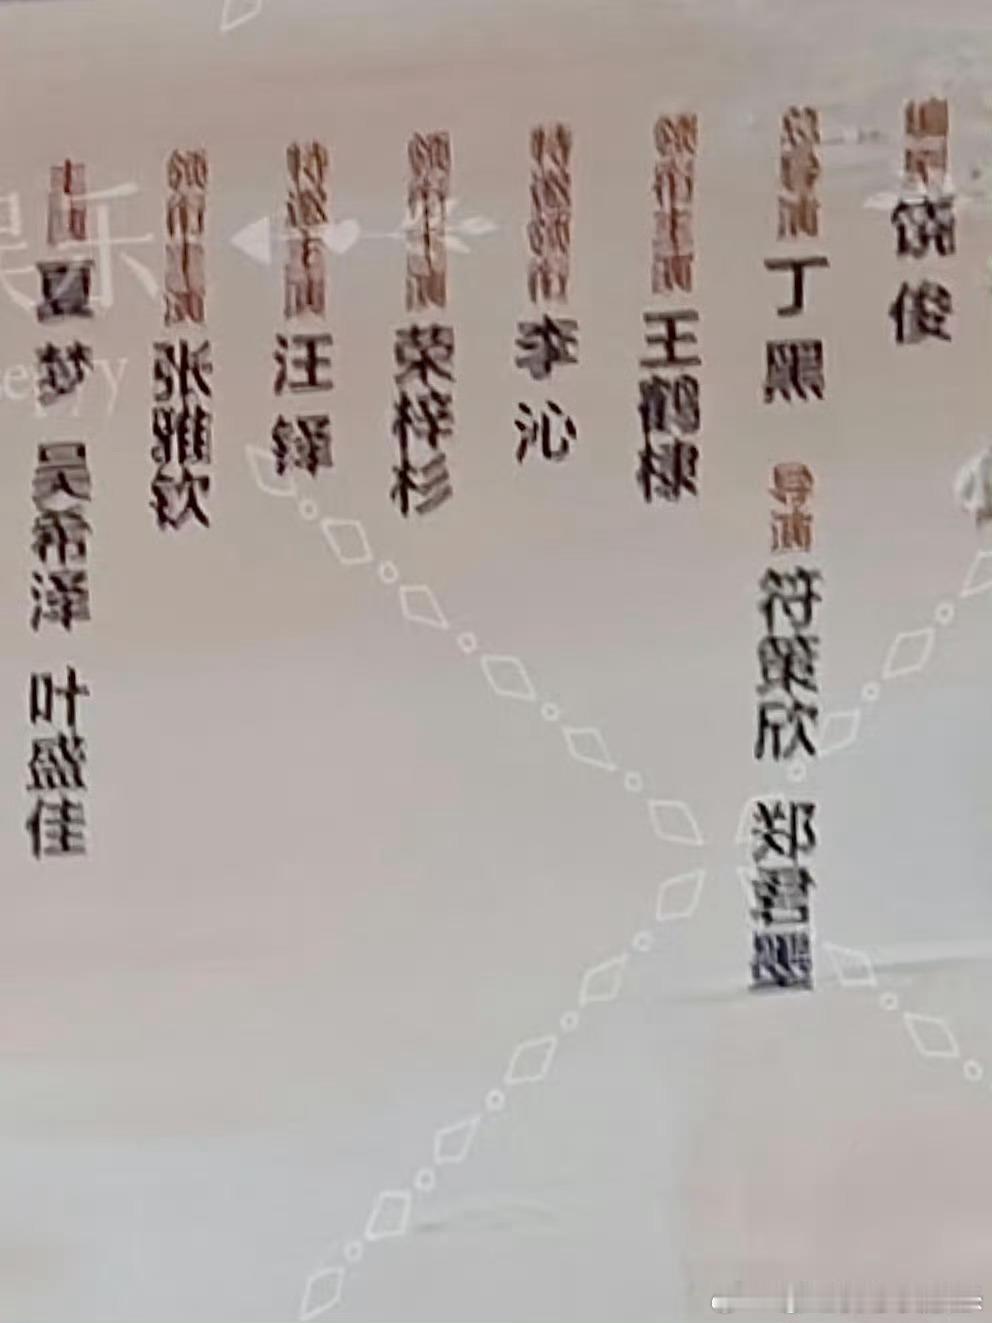 编剧 饶俊
总导演 丁黑 导演 符策欣 郑君墨
领衔主演 王鹤棣
特邀领衔 李沁
领衔主演 荣梓杉
特邀主演 汪铎
领衔主演 张雅钦
主演 夏梦 吴希泽 叶盛佳
娱乐